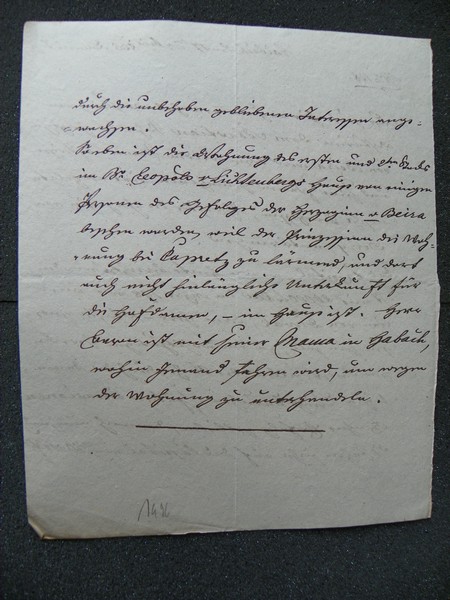 durch die unbehoben gebliebenen Interessen ange-
=wachsen.
Soeben ist die Wohnung des ersten und 2ten St. des
im Br. Leopold v Lichtenbergs Hause von einigen
Personen des Gefolges der Herzoginn v Beira
besehen worden, weil der Prinzessinn die Woh-
=nung bei Caspretz zu lärmend, und dort
auch nicht hinlängliche Unterkunft für
die Hofdamen, – im Hause ist. Herr
Baron ist mit seiner Mama in Habach,
wohin Jemand fahren wird, um wegen
der Wohnung zu unterhandeln.